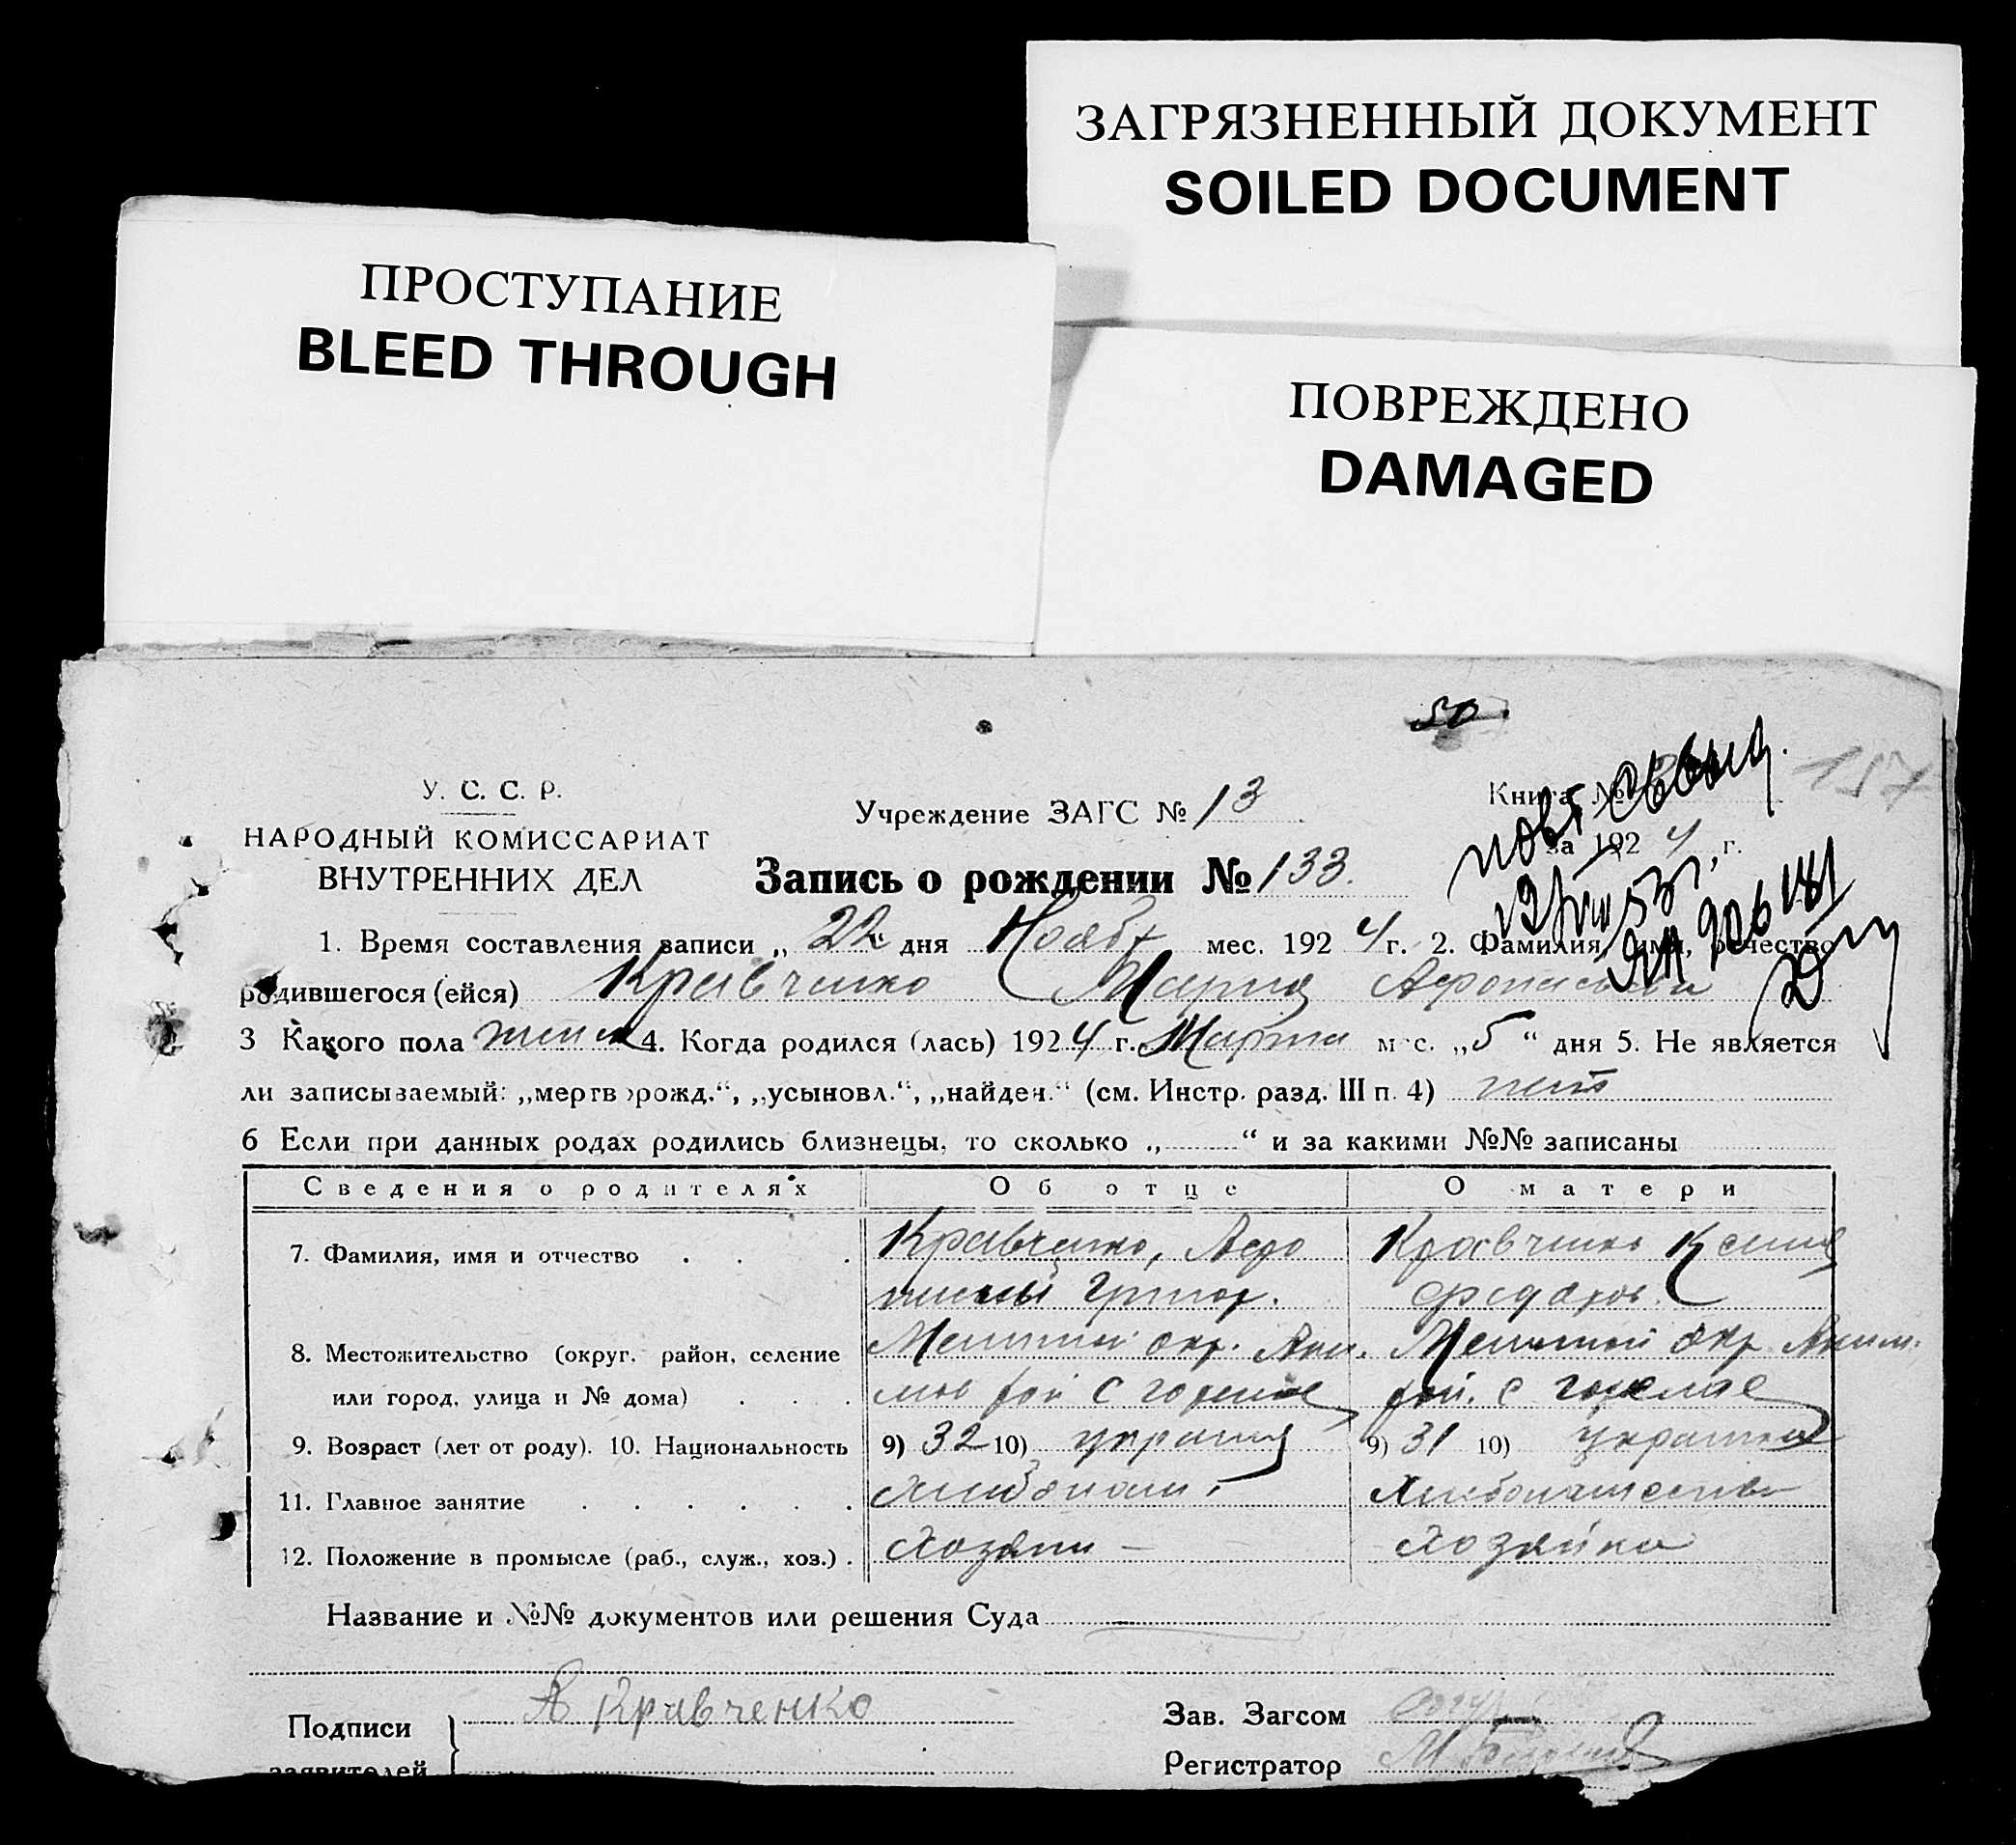 ЗАГРЯЗНЕННЫЙ ДОКУМЕНТ
SOILED DOCUMENT
ПРОСТУПАНИЕ
BLEED THROUGH
ПОВРЕЖДЕНО
DAMAGED
50
157
У. С. С. Р.
НАРОДНЫЙ КОМИССАРИАТ
ВНУТРЕННИХ ДЕЛ
Учреждение ЗАГС № 13
Книга №
за 1924 г.
Запись о рождении № 133.
1. Время составления записи „22“ дня Нояб мес. 1924 г. 2. Фамилия, имя, отчество
родившегося (ейся) Кравченко Мария
3 Какого пола жен 4. Когда родился (лась) 1924 г. Марта мес. „5“ дня 5. Не является
ли записываемый: „мертворожд.“, „усыновл.“, „найден.“ (см. Инстр. разд. III п. 4) нет
6 Если при данных родах родились близнецы, то сколько „ “ и за какими №№ записаны
Сведения о родителях Об отце О матери
7. Фамилия, имя и отчество Кравченко, Афо Кравченко Ксения
Григор. Федоров.
8. Местожительство (округ, район, селение окр. Аки. окр Аким.
или город, улица и № дома) мов рай с рай. с
9. Возраст (лет от роду). 10. Национальность 9) 32 10) 9) 31 10)
11. Главное занятие Хлебопаш. Хлебопашество
12. Положение в промысле (раб., служ., хоз.) Хозяин — Хозяйка
Название и №№ документов или решения Суда
Подписи заявителей А Кравченко
Зав. Загсом
Регистратор М